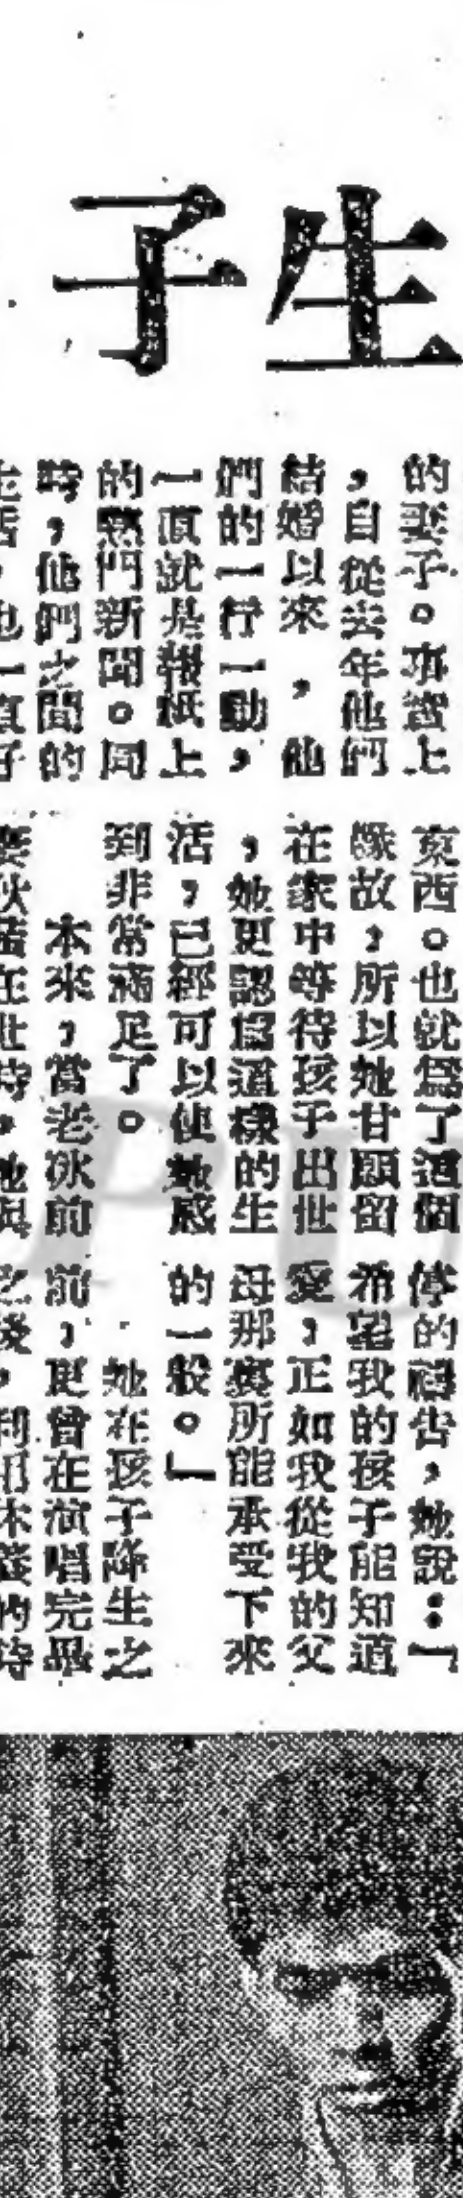 生子
的妻子。事實上
，自從去年他們
結婚以來，他
們的一行一動，
一直就是報紙上
的熱門新聞。同
時，他們之間的
生活，也一直好
東西。也就為了這個
緣故，所以她甘願留
在家中等待孩子出世
，她更認為這樣的生
活，已經可以使她感
到非常滿足了。
本來，當老狄前
妻狄茜在世時，她與
停的禱告，她說：「
希望我的孩子能知道
愛，正如我從我的父
母那裏所能承受下來
的一般。」
她在孩子降生之
前，更曾在演唱完畢
之後，利用休 的時
PU